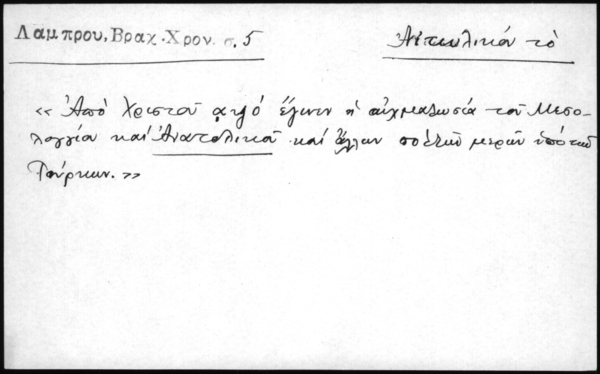 Λαμπρου, Βραχ. Χρον. σ. 5
Αἰτωλικόν τό
«Ἀπό Χριστοῦ ἔγινεν ἡ αἰχμαλωσία τοῦ Μεσο-
λογγίου καί Ἀνατολικοῦ καί ἄλλων μερῶν ὑπό τῶν
Τούρκων.»